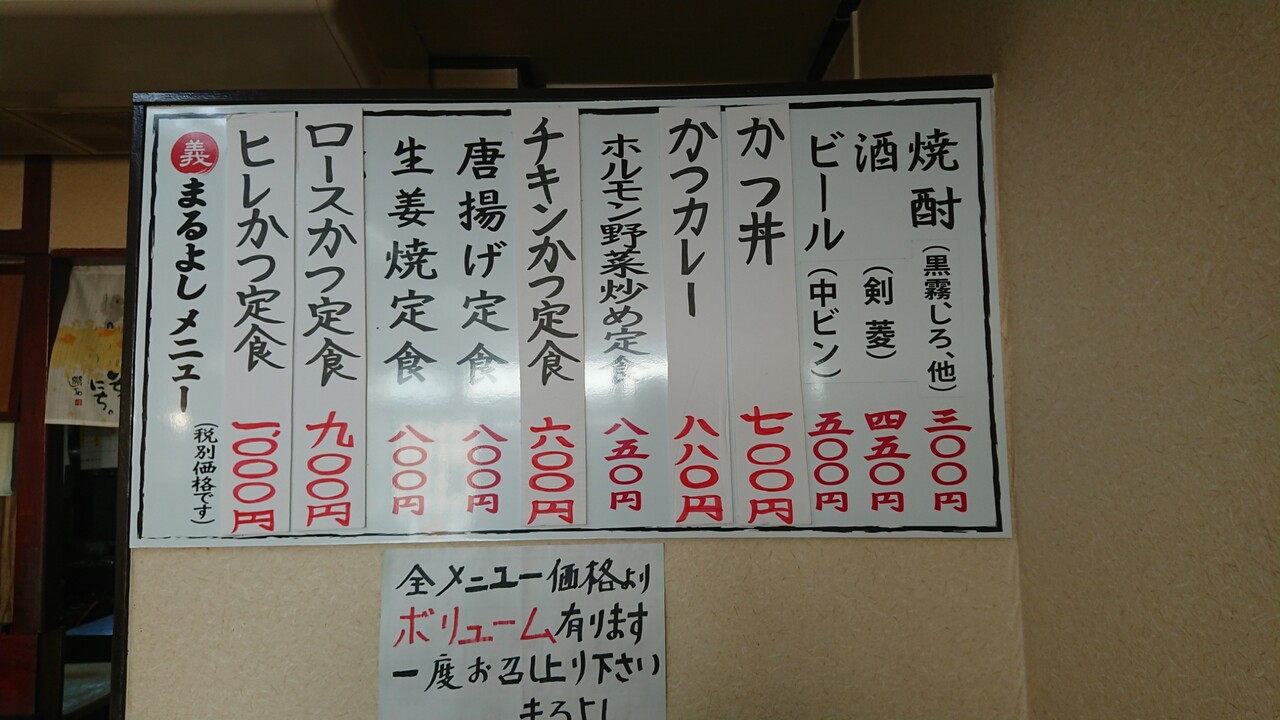 焼酎(黒霧、しろ、他)三〇〇円
酒(剣菱)四五〇円
ビール(中ビン)五〇〇円
かつ丼七〇〇円
かつカレー八八〇円
ホルモン野菜炒め定食八五〇円
チキンかつ定食六〇〇円
唐揚げ定食八〇〇円
生姜焼定食八〇〇円
ロースかつ定食九〇〇円
ヒレかつ定食1,000円
(税別価格です)
義まるよしメニュー
全メニュー価格より
ボリューム有ります
一度お召し上り下さい
まるよし